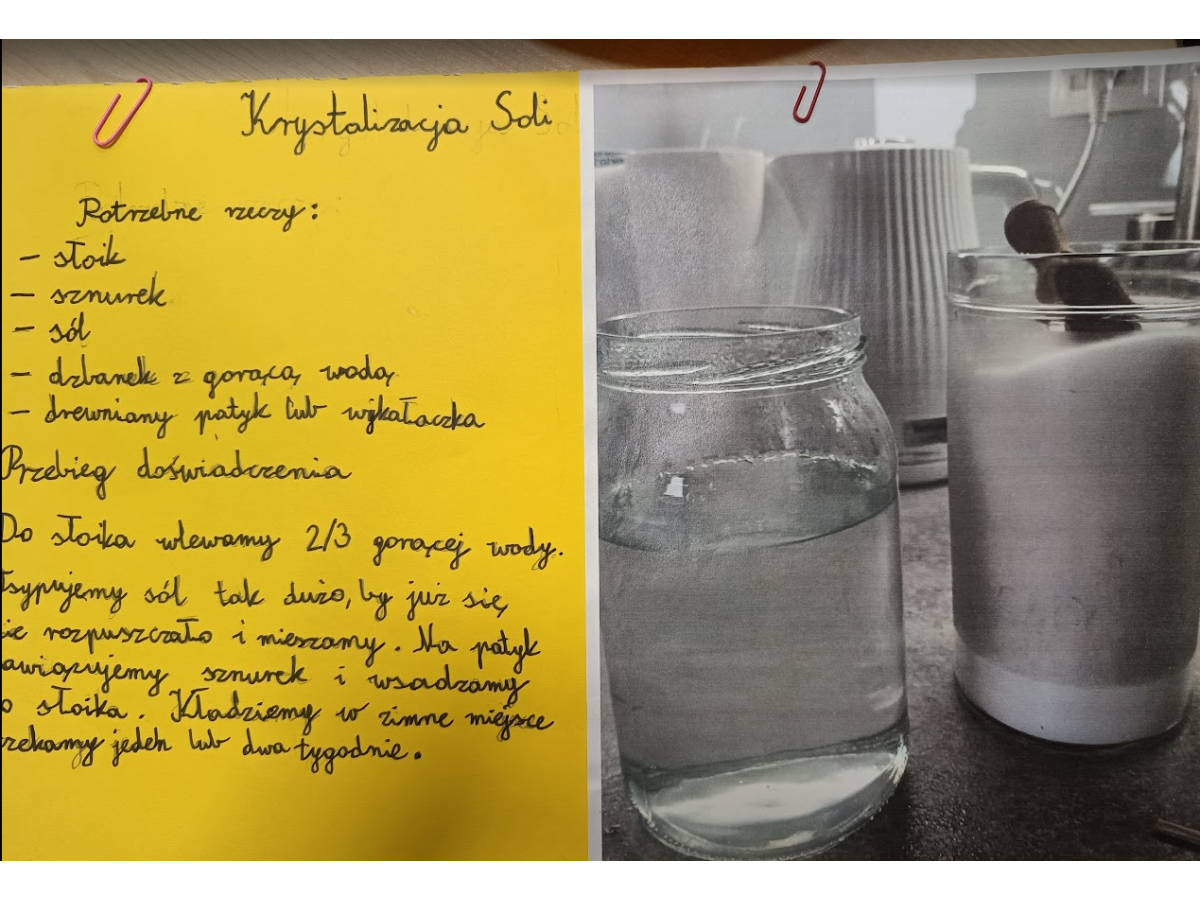 Krystalizacja Soli
Potrzebne rzeczy:
- słoik
- sznurek
- sól
- dzbanek z gorącą wodą
- drewniany patyk lub wykałaczka
Przebieg doświadczenia
Do słoika wlewamy 2/3 gorącej wody.
sypujemy sól tak dużo, by już się
ie rozpuszczało i mieszamy. Na patyk
awiązujemy sznurek i wsadzamy
o słoika. Kładziemy w zimne miejsce
zekamy jeden lub dwa tygodnie.